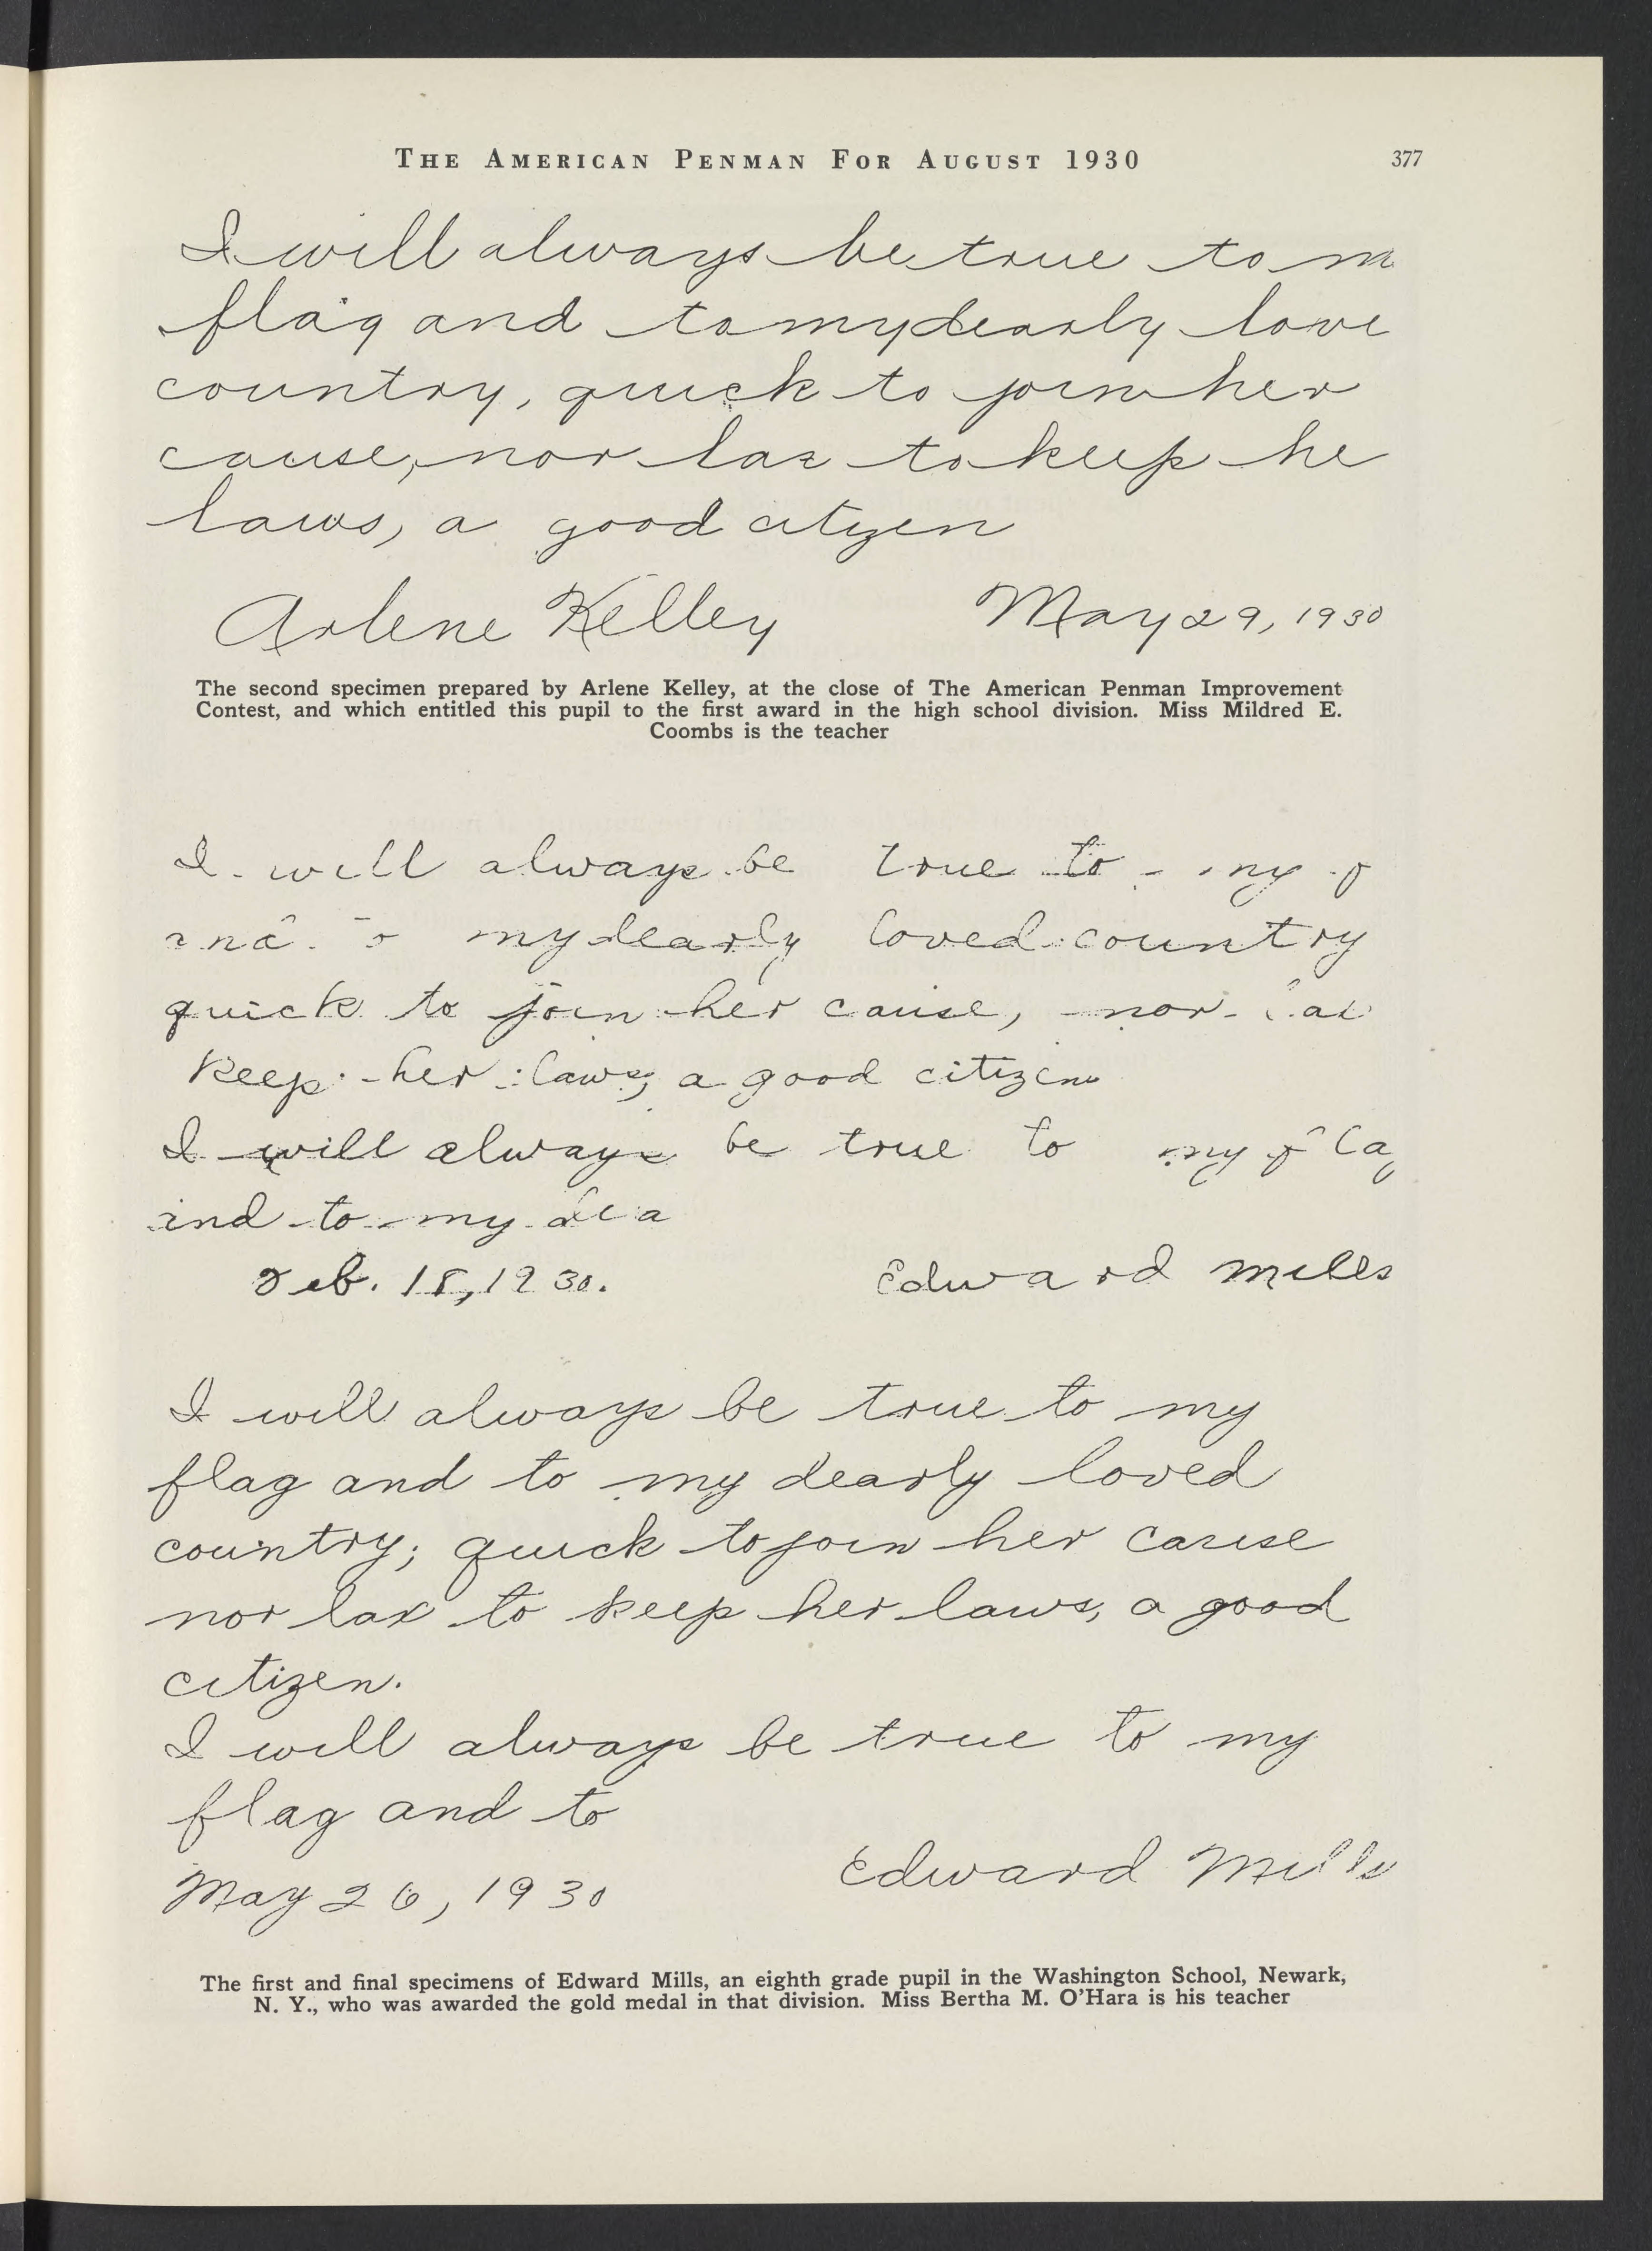 THE AMERICAN PENMAN FOR AUGUST 1930 377
I will always be true to m
flag and to my dearly love
country, quick to join her
cause, nor lax to keep he
laws, a good citizen
Arlene Kelley May 29, 1930
The second specimen prepared by Arlene Kelley, at the close of The American Penman Improvement
Contest, and which entitled this pupil to the first award in the high school division. Miss Mildred E.
Coombs is the teacher
I will always be true to my f
and to my dearly loved country
quick to join her cause, nor lax
keep her laws, a good citizen
I will always be true to my flag
and to my dea
Feb. 18, 1930. Edward Mills
I will always be true to my
flag and to my dearly loved
country; quick to join her cause
nor lax to keep her laws, a good
citizen.
I will always be true to my
flag and to
May 26, 1930 Edward Mills
The first and final specimens of Edward Mills, an eighth grade pupil in the Washington School, Newark,
N. Y., who was awarded the gold medal in that division. Miss Bertha M. O'Hara is his teacher